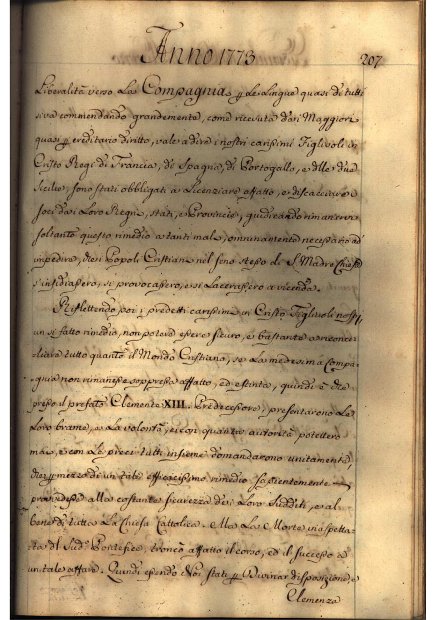 Anno 1773
207
Liberalità verso La Compagnia p le Lingue quasi di tutti
si va commendando grandemente, come ricevuta dai Maggiori
quasi p ereditario diritto, vale a dire i nostri carissimi Figlivoli di
Cristo Regi di Francia, di Spagna, di Portogallo, e delle due
Sicilie, sono stati obbligati a Licenziare affatto, e discacciare i
Soci dai Loro Regni, stati, e Provincie, giudicando rimanere
soltanto questo rimedio a tanti mali, omninamente necessario ad
impedire, che i Popoli Cristiani nel seno stesso di S. Madre Chiesa
s'insidiassero, si provocassero, e si Lacerassero a vicenda.
Reflettendo poi i predetti carissimi in Cristo Figlivoli nostri,
un sì fatto rimedio, non potere essere sicuro, e bastante a riconci-
liare tutto quanto il Mondo Cristiano, se La medesima Compa-
gnia non rimanesse soppressa affatto, ed estinta, quindi è che
presso il prefato Clemente XIII. Predecessore, presentarono Le
Loro brame, e La volontà, e con quanta autorità potettero
mai, e con Le preci tutti insieme domandarono unitamente,
che p mezzo di un tale efficacissimo rimedio sapientemente
provedesse alla costante sicurezza dei Loro Sudditi, e al
bene di tutta La Chiesa Cattolica. Ma La Morte inaspetta-
ta del Sud.º Pontefice troncò affatto il corso, ed il successo a
un tale affare. Quindi essendo Noi stati p Divina disposizione
Clemenza